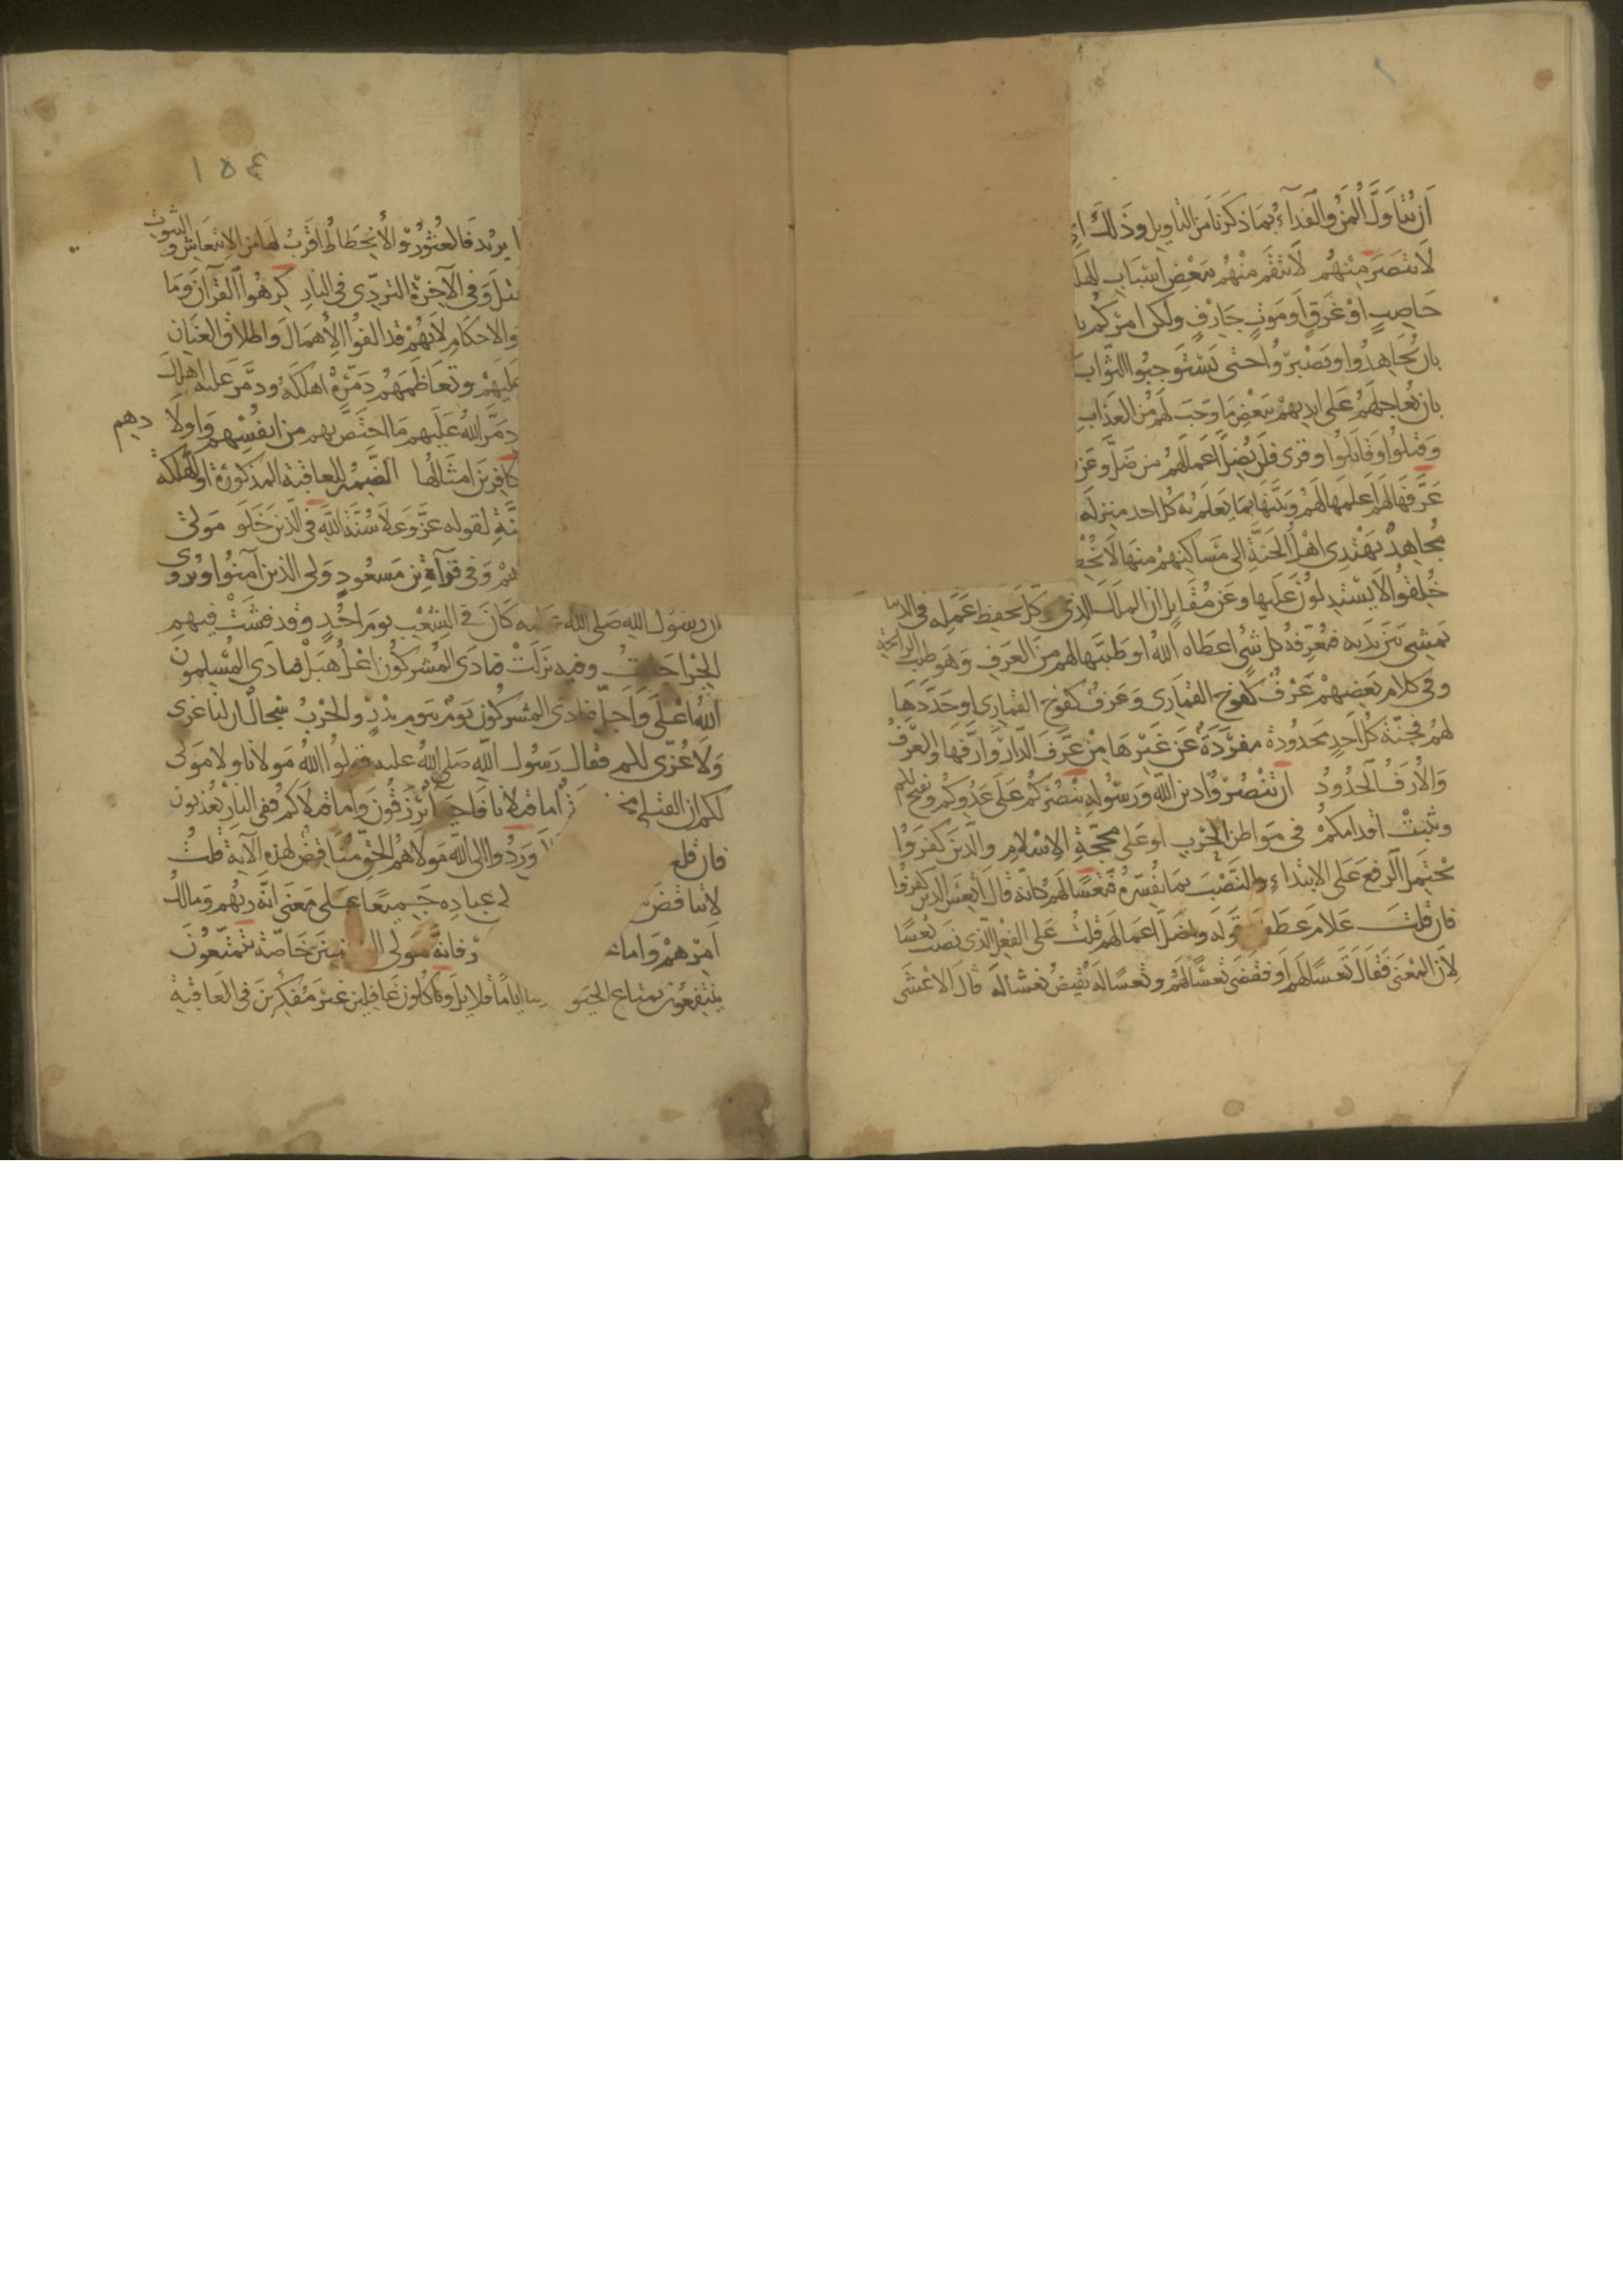 أن يتأول المن والفداء بما ذكرنا من التأويل وذلك أي
لانتصر منهم لانتقم منهم ببعض أسباب الهلك
حاصب أو غرق أو موت جارف ولكن أمركم با
بأن يجاهدوا ويصبروا حتى يستوجبوا الثواب
بأن يعاجلهم على أيديهم ببعض ما وجب لهم من العذاب
وقتلوا وقاتلوا وقرئ فلن يضل أعمالهم من ضل وعن
عرفها لهم أعلمها لهم وبينها بما يعلم به كل أحد منزله
مجاهد يهتدي أهل الجنة إلى مساكنهم منها لا يخط
خلقوا لا يستدلون عليها وعن مقاتل أن الملك الذي وكل بحفظ عمله في الدنيا
يمشي بين يديه فيعرفه كل شيء أعطاه الله أو طيبها لهم من العرف وهو طيب الرائحة
وفي كلام بعضهم عزف كنوح القماري وعرف كفوح القماري أو حددها
لهم فجنة كل أحد محدودة مفرزة عن غيرها من عرف الدار وارفها والعرف
والأرف الحدود أن تنصروا دين الله ورسوله ينصركم على عدوكم ويفتح لكم
ويثبت أقدامكم في مواطن الحرب أو على محجة الإسلام والذين كفروا
يحتمل الرفع على الابتداء والنصب بما يفسره فتعسا لهم كأنه قال أتعس الذين كفروا
فإن قلت علام عطف قوله وأضل أعمالهم قلت على الفعل الذي نصب تعسا
لأن المعنى فقال تعسا لهم أو فقضى تعسا لهم وتعسا له نقيض لعا له قال الأعشى
١٥٤
يريد فالعثور والانحطاط أقرب لها من الانتعاش و
الثبوت
وفي الآخرة التردي في النار كرهوا القرآن وما
والأحكام لأنهم قد ألفوا الإهمال وإطلاق العنان
عليهم وتعاظمهم دمره أهلكه ودمر عليه أهلك
دمر الله عليهم ما اختص بهم من أنفسهم وأولا
دهم
كافرين أمثالها الضمير للعاقبة المذكورة أو للهلكة
لقوله عز وعلا سنة الله في الذين خلو مولى
وفي قرآة بن مسعود ولي الذين آمنوا ويروى
أن رسول الله صلى الله عليه كان في الشعب يوم أحد وقد فشت فيهم
الجراحات وفيه نزلت فنادى المشركون اعل هبل فنادى المسلمون
الله أعلى وأجل فنادى المشركون يوم بيوم بدر والحرب سجال إن لنا عزى
ولا عزى لكم فقال رسول الله صلى الله عليه قولوا الله مولانا ولا مولى
لكم إن القتلى أما قتلانا فأحياء يرزقون وأما قتلاكم ففي النار يعذبون
فإن قلت وردوا إلى الله مولاهم الحق مناقض لهذه الآية قلت
لا تناقض عباده جميعا على معنى أنه ربهم ومالك
أمرهم وأما فإنه مولى المؤمنين خاصة يتمتعون
ينتفعون بمتاع الحيو أياما قلايل ويأكلون غافلين غير مفكرين في العاقبة